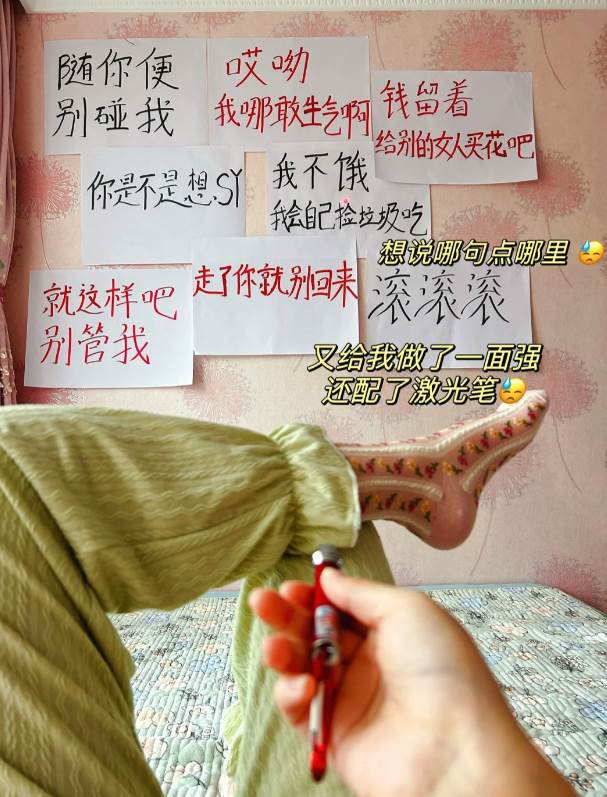 随你便
别碰我
哎呦
我哪敢生气啊
钱留着
给别的女人买花吧
你是不是想SY
我不饿
我会自己捡垃圾吃
想说哪句点哪里
就这样吧
别管我
走了你就别回来
滚滚滚
又给我做了一面强
还配了激光笔